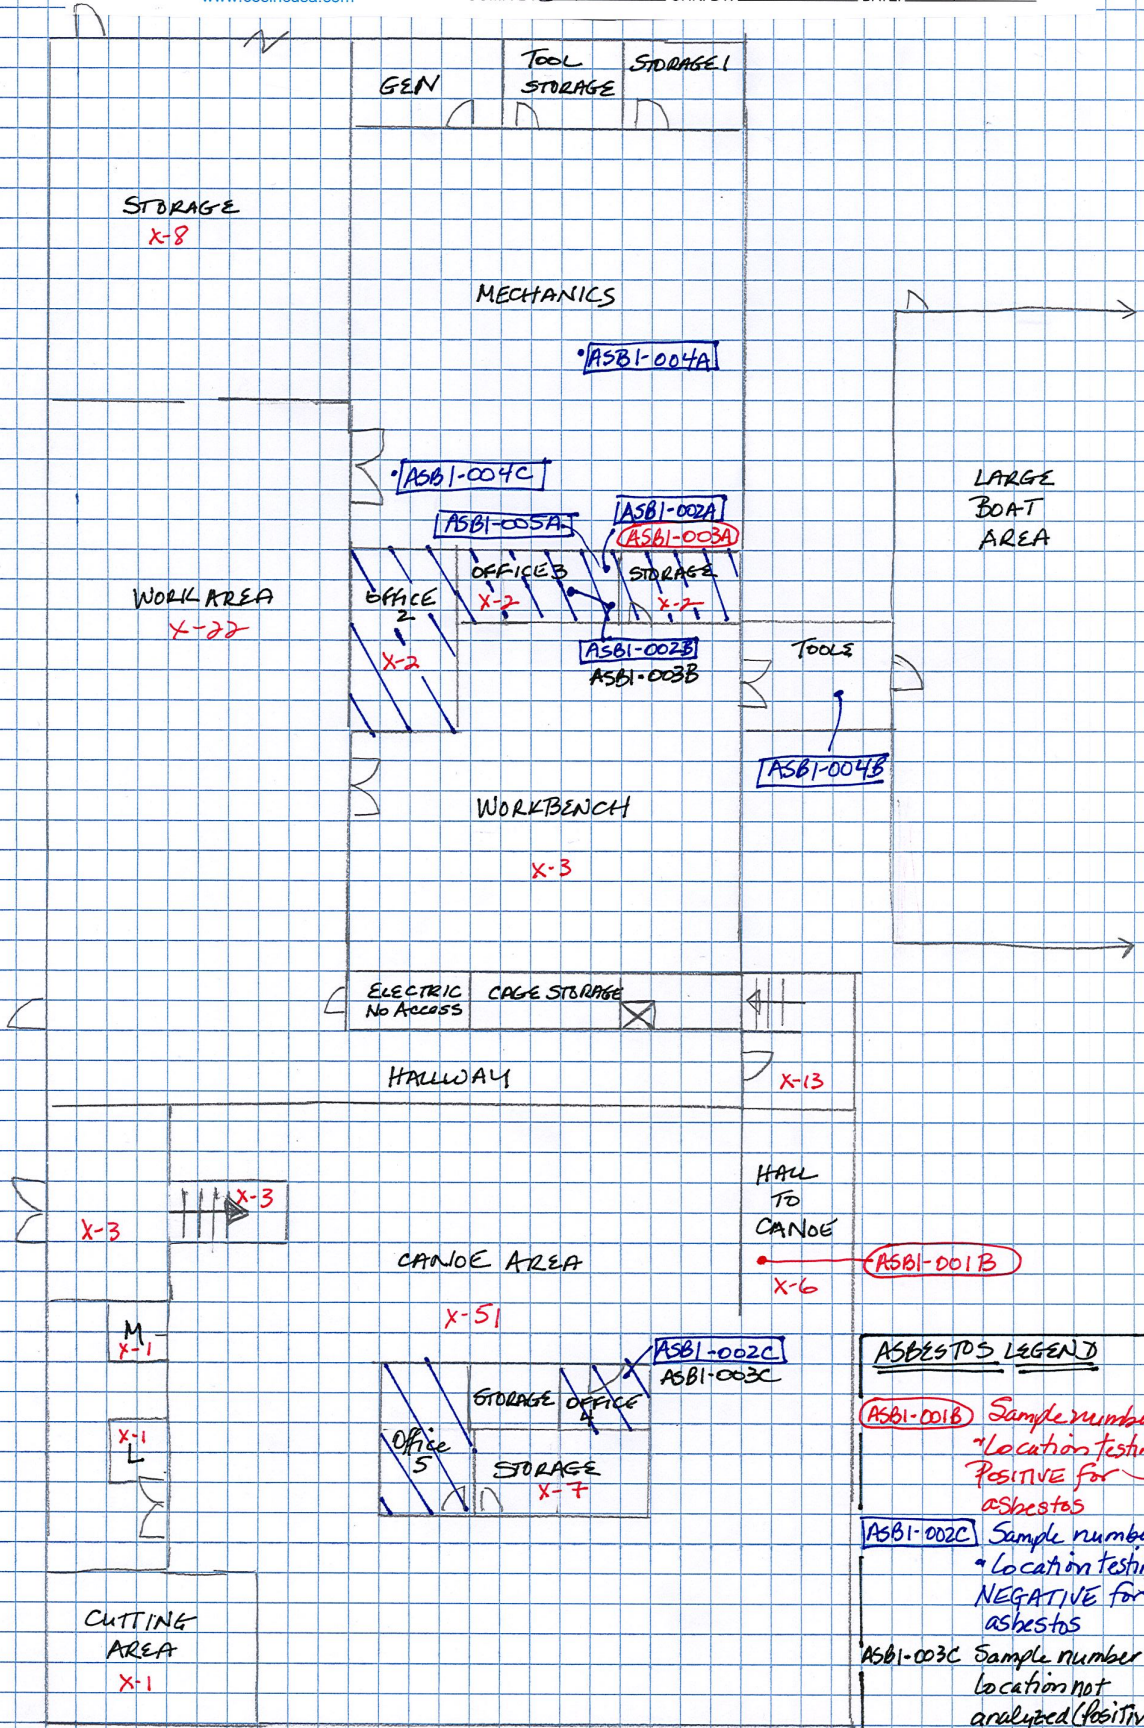 www.
GEN
TOOL
STORAGE
STORAGE 1
STORAGE
X-8
MECHANICS
ASB1-004A
ASB1-004C
ASB1-005A
ASB1-002A
ASB1-003A
LARGE
BOAT
AREA
WORK AREA
X-22
OFFICE
2
X-2
OFFICE 3
X-2
STORAGE
X-2
ASB1-002B
ASB1-003B
TOOLS
ASB1-004B
WORKBENCH
X-3
ELECTRIC
NO ACCESS
CAGE STORAGE
HALLWAY
X-13
HALL
TO
CANOE
X-3
X-3
CANOE AREA
X-51
ASB1-001B
X-6
M
X-1
X-1
L
ASB1-002C
ASB1-003C
STORAGE
OFFICE
4
Office
5
STORAGE
X-7
CUTTING
AREA
X-1
ASBESTOS LEGEND
ASB1-001B Sample numbe
Location testi
POSITIVE for
asbestos
ASB1-002C Sample numbe
Location testi
NEGATIVE for
asbestos
ASB1-003C Sample number
Location not
analyzed (Positiv